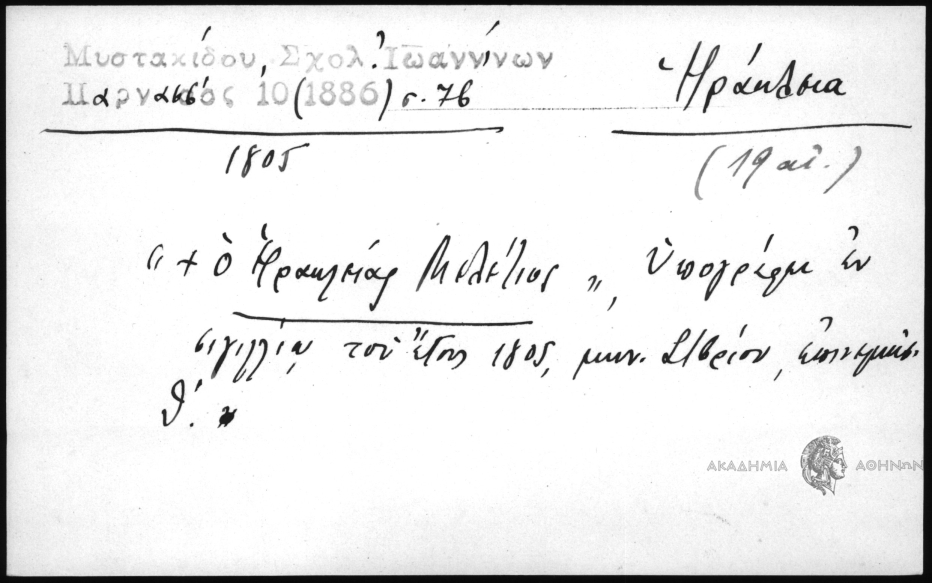 Μυστακίδου, Σχολ. Ἰωαννίνων
Παρνασσός 10 (1886) σ. 76
Ἡράκλεια
1805
(19 αἰ.)
"+ ὁ Ἡρακλείας Μελέτιος", ὑπογράφει ἐν
σιγιλλίῳ τοῦ ἔτους 1805, μην. Ἀπρίου, ἐπινεμήσ.
θ΄.
ΑΚΑΔΗΜΙΑ ΑΘΗΝΩΝ